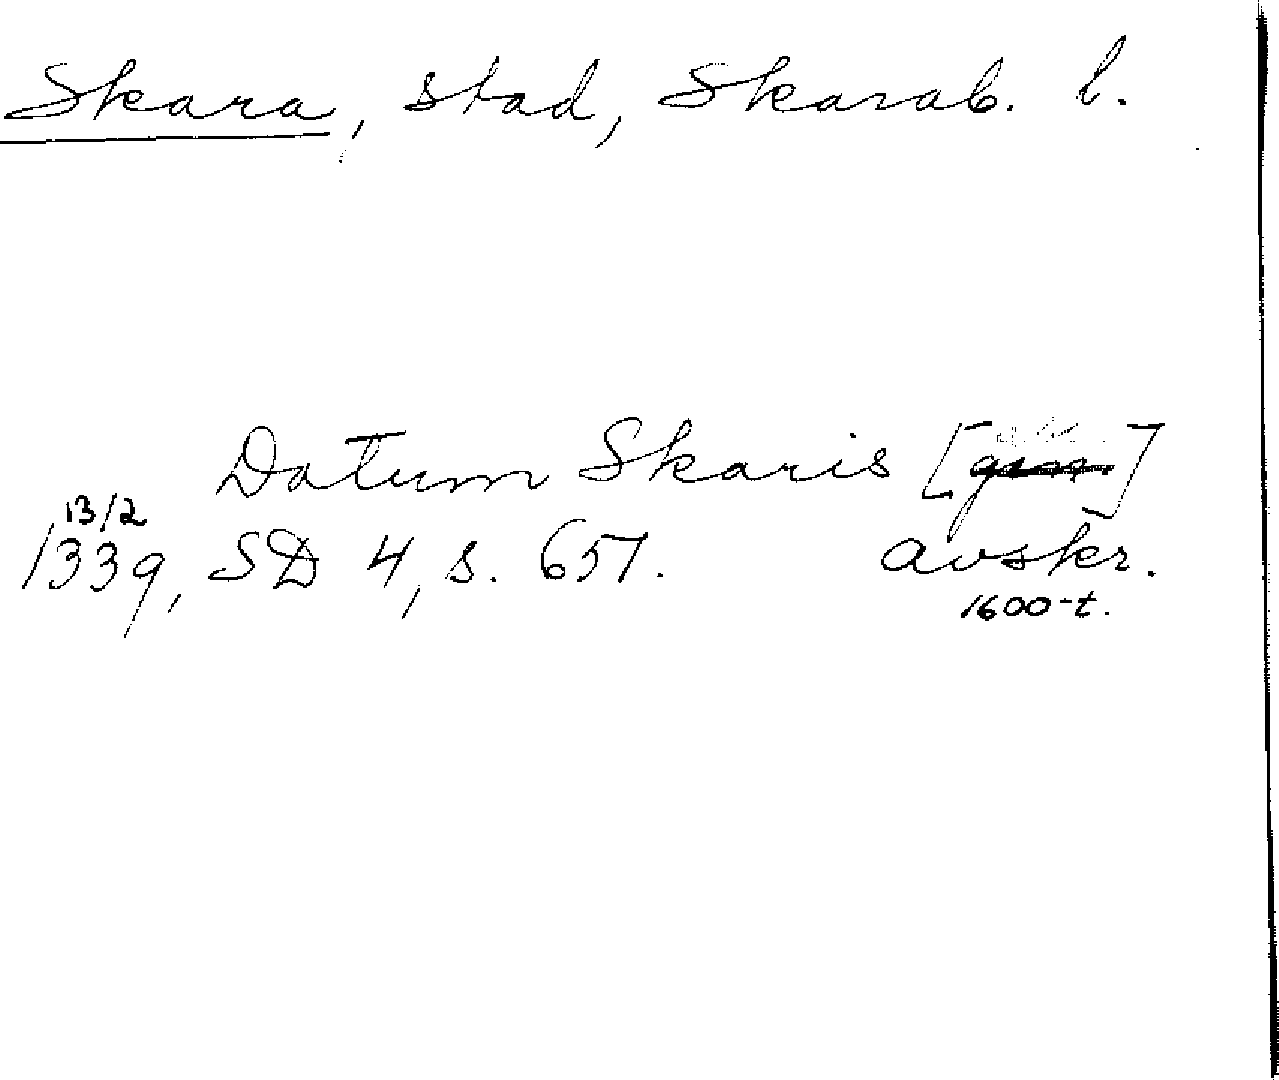 Skara, stad, Skarab. l.
Datum Skaris [ ]
13/2
1339, SD 4, s. 651. avskr.
1600-t.